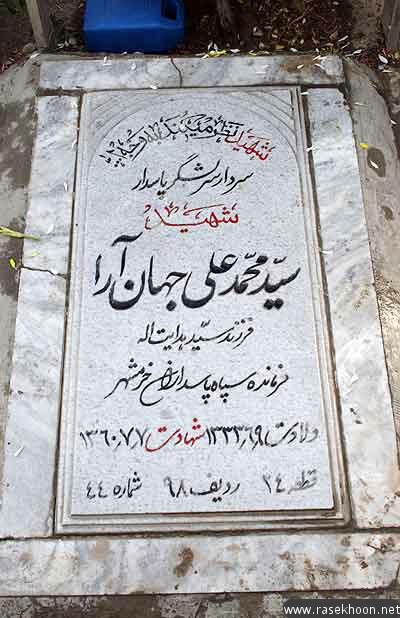 شهید نظر میکند به وجه الله
سردار سرلشگر پاسدار
شهید
سیّد محمّد علی جهان آرا
فرزند سیّد هدایت اله
فرمانده سپاه پاسداران خرمشهر
ولادت ۱۳۳۳٫۶٫۹ شهادت ۱۳۶۰٫۷٫۷
قطعه ۲۴ ردیف ۹۸ شماره ۴۴
www.rasekhoon.net